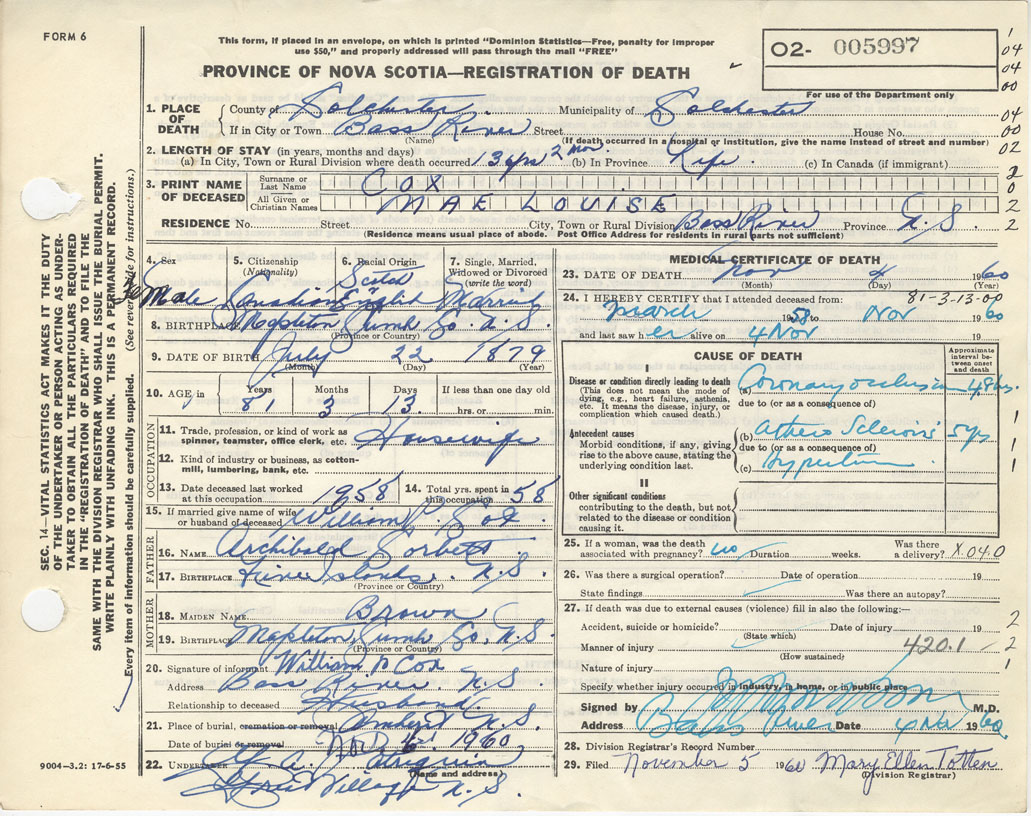 FORM 6
This form, if placed in an envelope, on which is printed "Dominion Statistics—Free, penalty for improper
use $50," and properly addressed will pass through the mail "FREE"
O2- 005997
1
04
04
00
PROVINCE OF NOVA SCOTIA—REGISTRATION OF DEATH
For use of the Department only
1. PLACE OF DEATH
County of Colchester Municipality of Colchester 04
If in City or Town Bass River Street House No. 00
(Name) (If death occurred in a hospital or Institution, give the name instead of street and number)
2. LENGTH OF STAY (in years, months and days) 02
(a) In City, Town or Rural Division where death occurred 13 yrs 2 mos. (b) In Province Life (c) In Canada (if immigrant)
3. PRINT NAME OF DECEASED
Surname or Last Name COX 2 0
All Given or Christian Names MAE LOUISE 2
RESIDENCE No. Street City, Town or Rural Division Bass River Province N.S. 2
(Residence means usual place of abode. Post Office Address for residents in rural parts not sufficient)
4. Sex Female
5. Citizenship (Nationality) Canadian
6. Racial Origin Scotch English
7. Single, Married, Widowed or Divorced (write the word) Married
8. BIRTHPLACE Mapleton Cumb Co. N.S.
(Province or Country)
9. DATE OF BIRTH July 22 1879
(Month) (Day) (Year)
10. AGE in Years Months Days If less than one day old
81 3 13 hrs. or min.
OCCUPATION
11. Trade, profession, or kind of work as spinner, teamster, office clerk, etc. Housewife
12. Kind of industry or business, as cotton-mill, lumbering, bank, etc.
13. Date deceased last worked at this occupation 1958
14. Total yrs. spent in this occupation 58
15. If married give name of wife or husband of deceased William P. Cox
FATHER
16. NAME Archibald Corbett
17. BIRTHPLACE Five Islands. N.S.
(Province or Country)
MOTHER
18. MAIDEN NAME Brown
19. BIRTHPLACE Mapleton Cumb Co, N.S.
(Province or Country)
20. Signature of informant William P Cox
Address Bass River N.S.
Relationship to deceased Husband
21. Place of burial, cremation or removal Amherst N.S.
Date of burial or removal Nov 6 1960
22. UNDERTAKER
(Name and address)
Village N.S.
MEDICAL CERTIFICATE OF DEATH
23. DATE OF DEATH Nov 4 1960
(Month) (Day)
24. I HEREBY CERTIFY that I attended deceased from: 81-3-13-00
March 1958 to Nov 1960
and last saw her alive on 4 Nov 19
CAUSE OF DEATH
Approximate interval between onset and death
I
Disease or condition directly leading to death
(This does not mean the mode of dying, e.g., heart failure, asthenia, etc. It means the disease, injury, or complication which caused death.)
(a) Coronary occlusion 48 hrs.
due to (or as a consequence of)
Antecedent causes
Morbid conditions, if any, giving rise to the above cause, stating the underlying condition last.
(b) Athero Sclerosis 5 yrs 1
due to (or as a consequence of) 1
(c) 1
II
Other significant conditions
contributing to the death, but not related to the disease or condition causing it.
25. If a woman, was the death associated with pregnancy? no Duration weeks. Was there a delivery? X.04.0
26. Was there a surgical operation? Date of operation 19
State findings Was there an autopsy?
27. If death was due to external causes (violence) fill in also the following:—
Accident, suicide or homicide? Date of injury 19 2
(State which)
Manner of injury 420.1 2
(How sustained)
Nature of injury 1
Specify whether injury occurred in industry, in home, or in public place
Signed by M.D.
Address Bass River Date 4 Nov 1960
28. Division Registrar's Record Number
29. Filed November 5 1960 Mary Ellen Totten
(Division Registrar)
SEC. 14—VITAL STATISTICS ACT MAKES IT THE DUTY
OF THE UNDERTAKER OR PERSON ACTING AS UNDER-
TAKER TO OBTAIN ALL THE PARTICULARS REQUIRED
IN THE "REGISTRATION OF DEATH" AND TO FILE THE
SAME WITH THE DIVISION REGISTRAR WHO SHALL ISSUE THE BURIAL PERMIT.
WRITE PLAINLY WITH UNFADING INK. THIS IS A PERMANENT RECORD.
Every item of information should be carefully supplied. (See reverse side for instructions.)
9004—3.2: 17-6-55